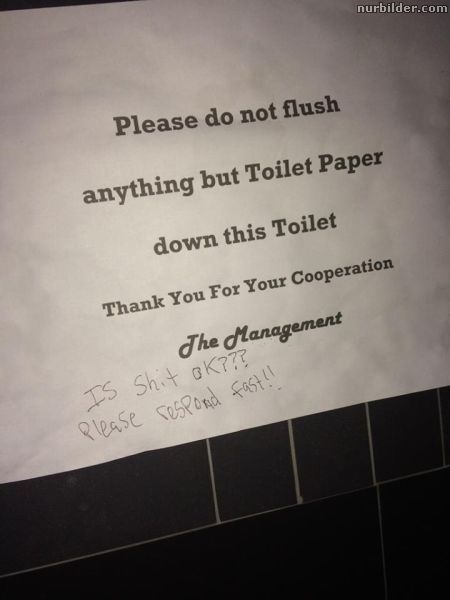 nurbilder.com
Please do not flush
anything but Toilet Paper
down this Toilet
Thank You For Your Cooperation
The Management
Is shit OK???
Please respond fast!!